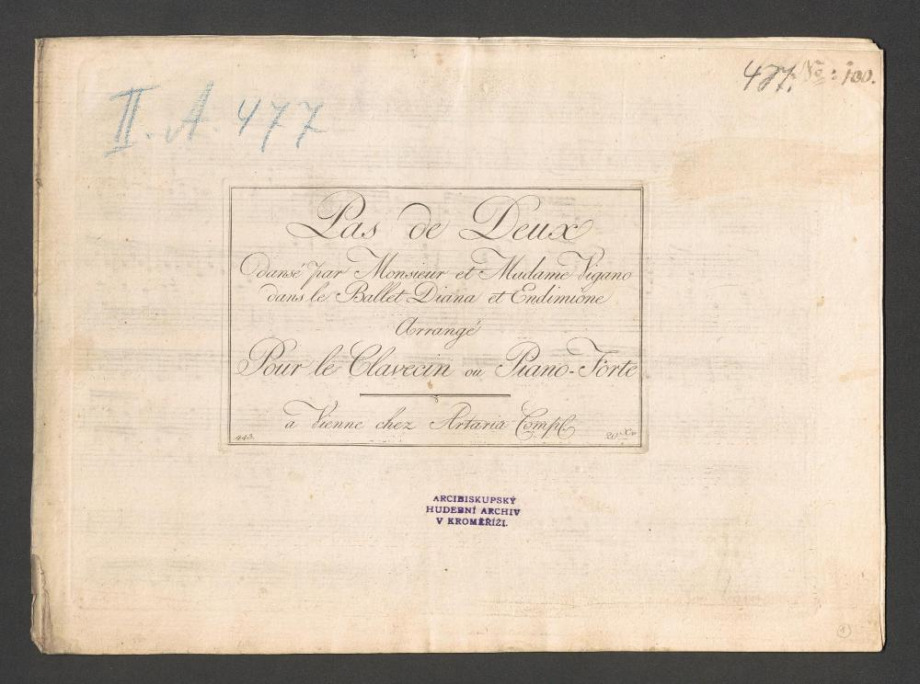 II. A. 477
477. No: 100.
Pas de Deux
dansé par Monsieur et Madame Vigano
dans le Ballet Diana et Endimione
Arrangé
Pour le Clavecin ou Piano-Forte
à Vienne chez Artaria Comp
20 Xr
ARCIBISKUPSKÝ
HUDEBNÍ ARCHIV
V KROMĚŘÍŽI.